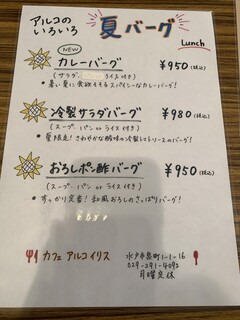 アルコの
いろいろ
夏バーグ
Lunch
NEW
カレーバーグ ¥950(税込)
(サラダ、 ライス付き)
• 暑い夏に食欲そそるスパイシーなカレーバーグ!
冷製サラダバーグ ¥980(税込)
(スープ、パン or ライス付き)
• 夏限定! さわやかな酸味の冷製レモンソースのバーグ!
おろしポン酢バーグ ¥950(税込)
(スープ、パン or ライス付き)
• すっかり定番! 和風おろしのさっぱりバーグ!
カフェ アルコイリス
水戸市泉町1-1-16
029-291-4092
月曜定休